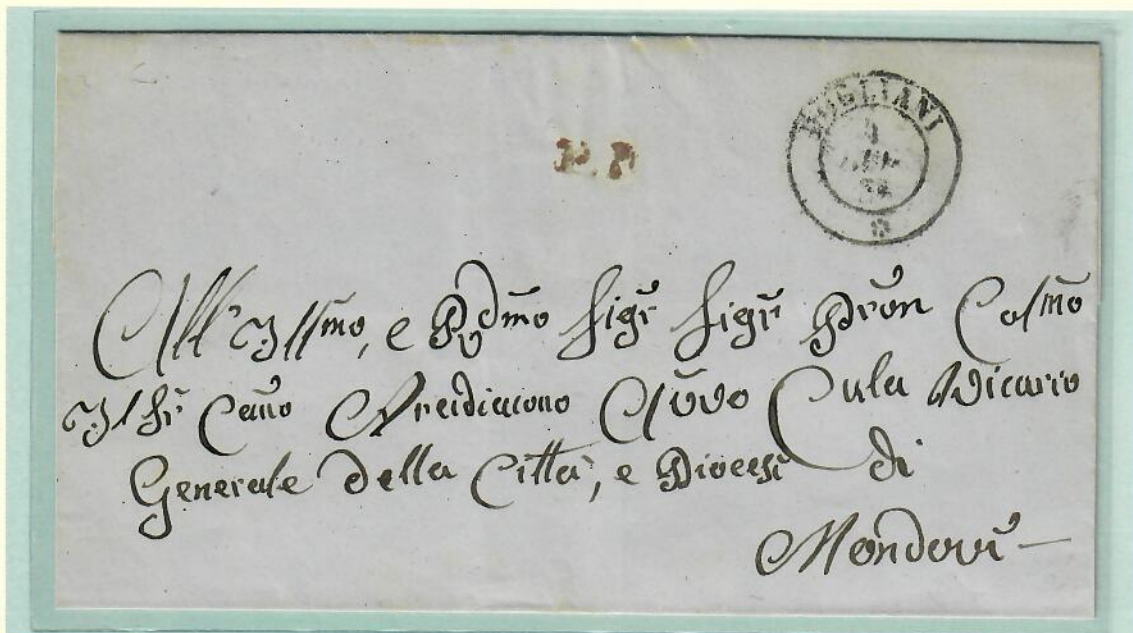 DOGLIANI
4
P.P.
All'Ill.mo, e R.do.mo Sig.r Sig.r P.ron Col.mo
Il Sig.r Can.o Arcidiacono Vicario
Generale della Città, e Diocesi di
Mondovì